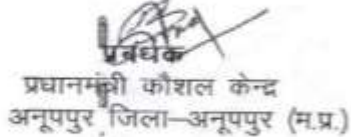 प्रबंधक
प्रधानमंत्री कौशल केन्द्र
अनूपपुर जिला–अनूपपुर (म.प्र.)